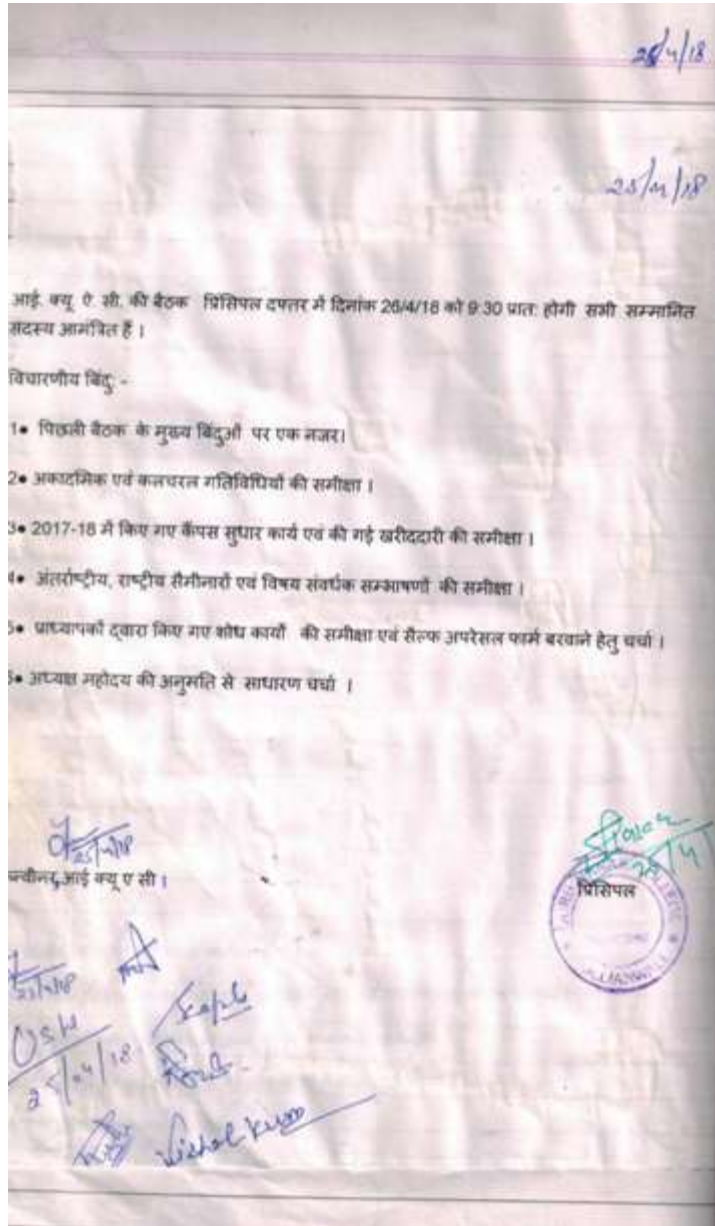 25/4/18
25/4/18
आई. क्यू. ऐ. सी. की बैठक प्रिंसिपल दफ्तर में दिनांक 26/4/18 को 9:30 प्रात: होगी सभी सम्मानित
सदस्य आमंत्रित हैं ।
विचारणीय बिंदु: -
1● पिछली बैठक के मुख्य बिंदुओं पर एक नजर।
2● अकादमिक एवं कलचरल गतिविधियों की समीक्षा ।
3● 2017-18 में किए गए कैंपस सुधार कार्य एवं की गई खरीददारी की समीक्षा ।
● अंतर्राष्ट्रीय, राष्ट्रीय सैमीनारों एवं विषय संवर्धक सम्भाषणों की समीक्षा ।
● प्राध्यापकों द्वारा किए गए शोध कार्यों की समीक्षा एवं सैल्फ अपरेसल फार्म बरवाने हेतु चर्चा ।
● अध्यक्ष महोदय की अनुमति से साधारण चर्चा ।
25/4/18
न्वीनर, आई क्यू ए सी ।
प्रिंसिपल
25/4/18
25/04/18
Vishal Kumar